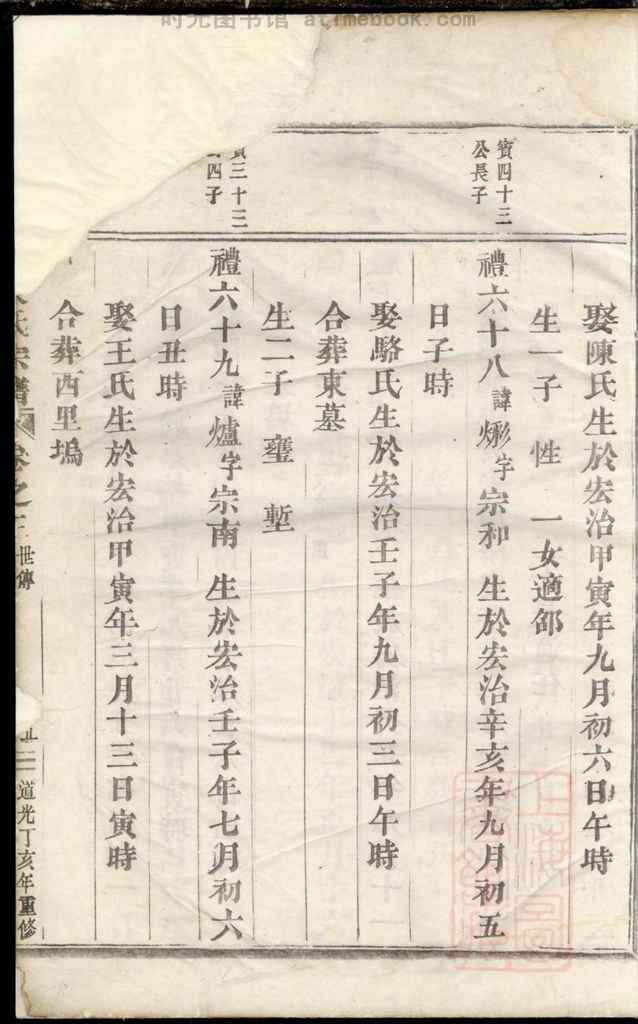 时光图书馆 atimebook.com
娶陳氏生於宏治甲寅年九月初六日午時
生一子 性 一女適邵
寳四十三
公長子
禮六十八 諱 字宗和 生於宏治辛亥年九月初五
日子時
娶駱氏生於宏治壬子年九月初三日午時
合葬東墓
生二子 壅 塹
三十三
四子
禮六十九 諱爐字宗南 生於宏治壬子年七月初六
日丑時
娶王氏生於宏治甲寅年三月十三日寅時
合葬西里塢
氏宗譜 卷之三 世傳
道光丁亥年重修